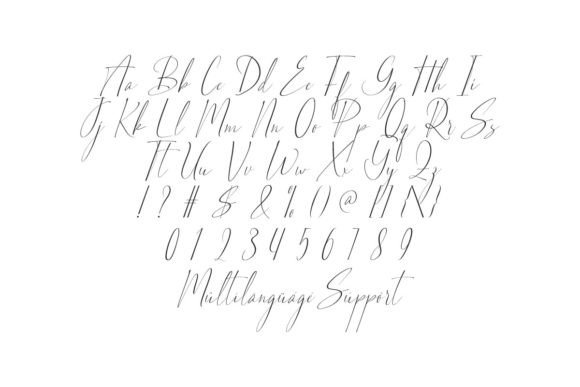 Aa Bb Cc Dd Ee Ff Gg Hh Ii
Jj Kk Ll Mm Nn Oo Pp Qq Rr Ss
Tt Uu Vv Ww Xx Yy Zz
! ? # $ & % () @ [/] {\}
0 1 2 3 4 5 6 7 8 9
Mültilangüâgé Süppört